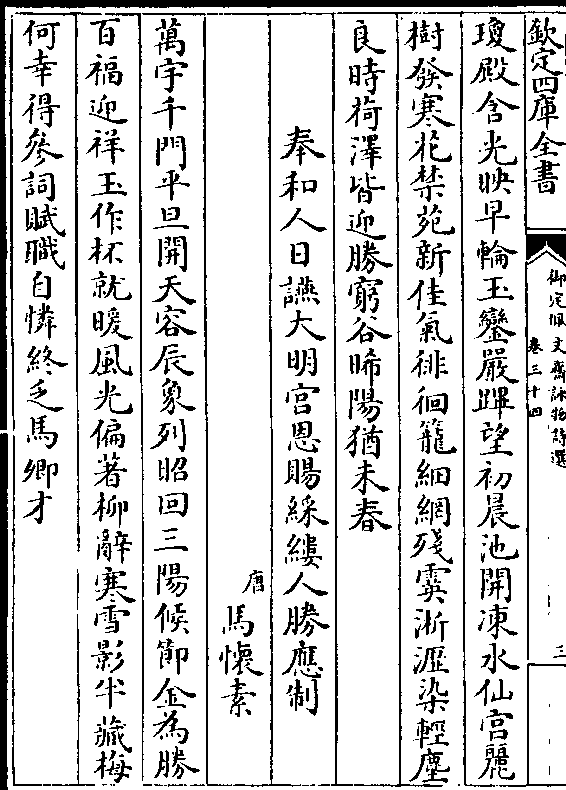 欽定四庫全書
御定佩文齋詠物詩選
卷三十四
三
瓊殿含光映早輪玉鑾嚴蹕望初晨池開凍水仙宮麗
樹發寒花禁苑新佳氣徘徊籠細網殘霙淅瀝染輕塵
良時荷澤皆迎勝窮谷晞陽猶未春
奉和人日讌大明宮恩賜綵縷人勝應制
唐
馬懷素
萬宇千門平旦開天容辰象列昭回三陽候節金為勝
百福迎祥玉作杯就暖風光偏著柳辭寒雪影半藏梅
何幸得參詞賦職自憐終乏馬卿才